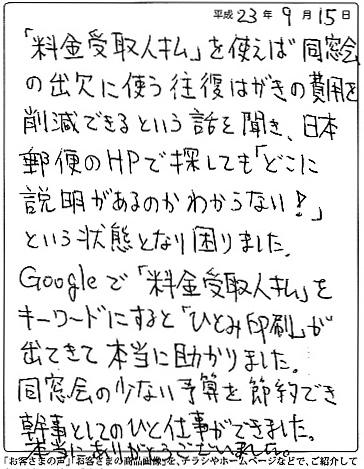 平成 23 年 9 月 15 日
「料金受取人払」を使えば同窓会
の出欠に使う往復はがきの費用を
削減できるという話を聞き、日本
郵便のHPで探しても「どこに
説明があるのかわからない!」
という状態となり困りました。
Googleで「料金受取人払」を
キーワードにすると「ひとみ印刷」が
出てきて本当に助かりました。
同窓会の少ない予算を節約でき
幹事としてのひと仕事ができました。
本当にありがとうございました。
「お客さまの声」「お客さまの商品画像」を、チラシやホームページなどで、ご紹介して